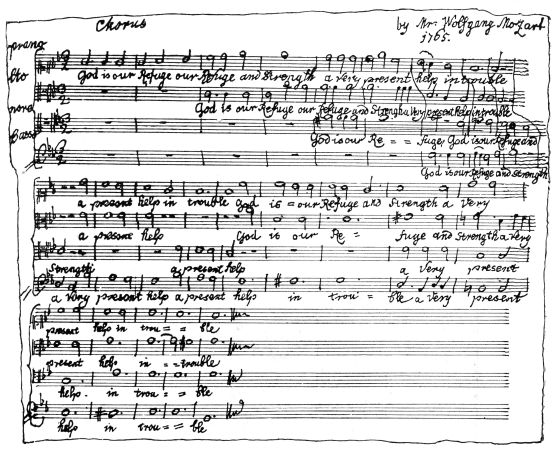 Chorus
by Mr. Wolfgang Mozart
1765.
prano
lto
nora
Basso
God is our Refuge our Refuge and Strength a very present help in trouble
God is our Refuge our Refuge and Strength a very present help in trouble
God is our Re = = fuge, God is our refuge and
God is our refuge and strength
a present help in trouble God is = our Refuge and Strength a Very
a present help God is our Re = fuge and strength a Very
Strength a present help a Very present
a very present help a present help in trou = ble a very present
present help in trou = = ble
present help in = = trouble
help. in trou = = ble
help in trou = = ble